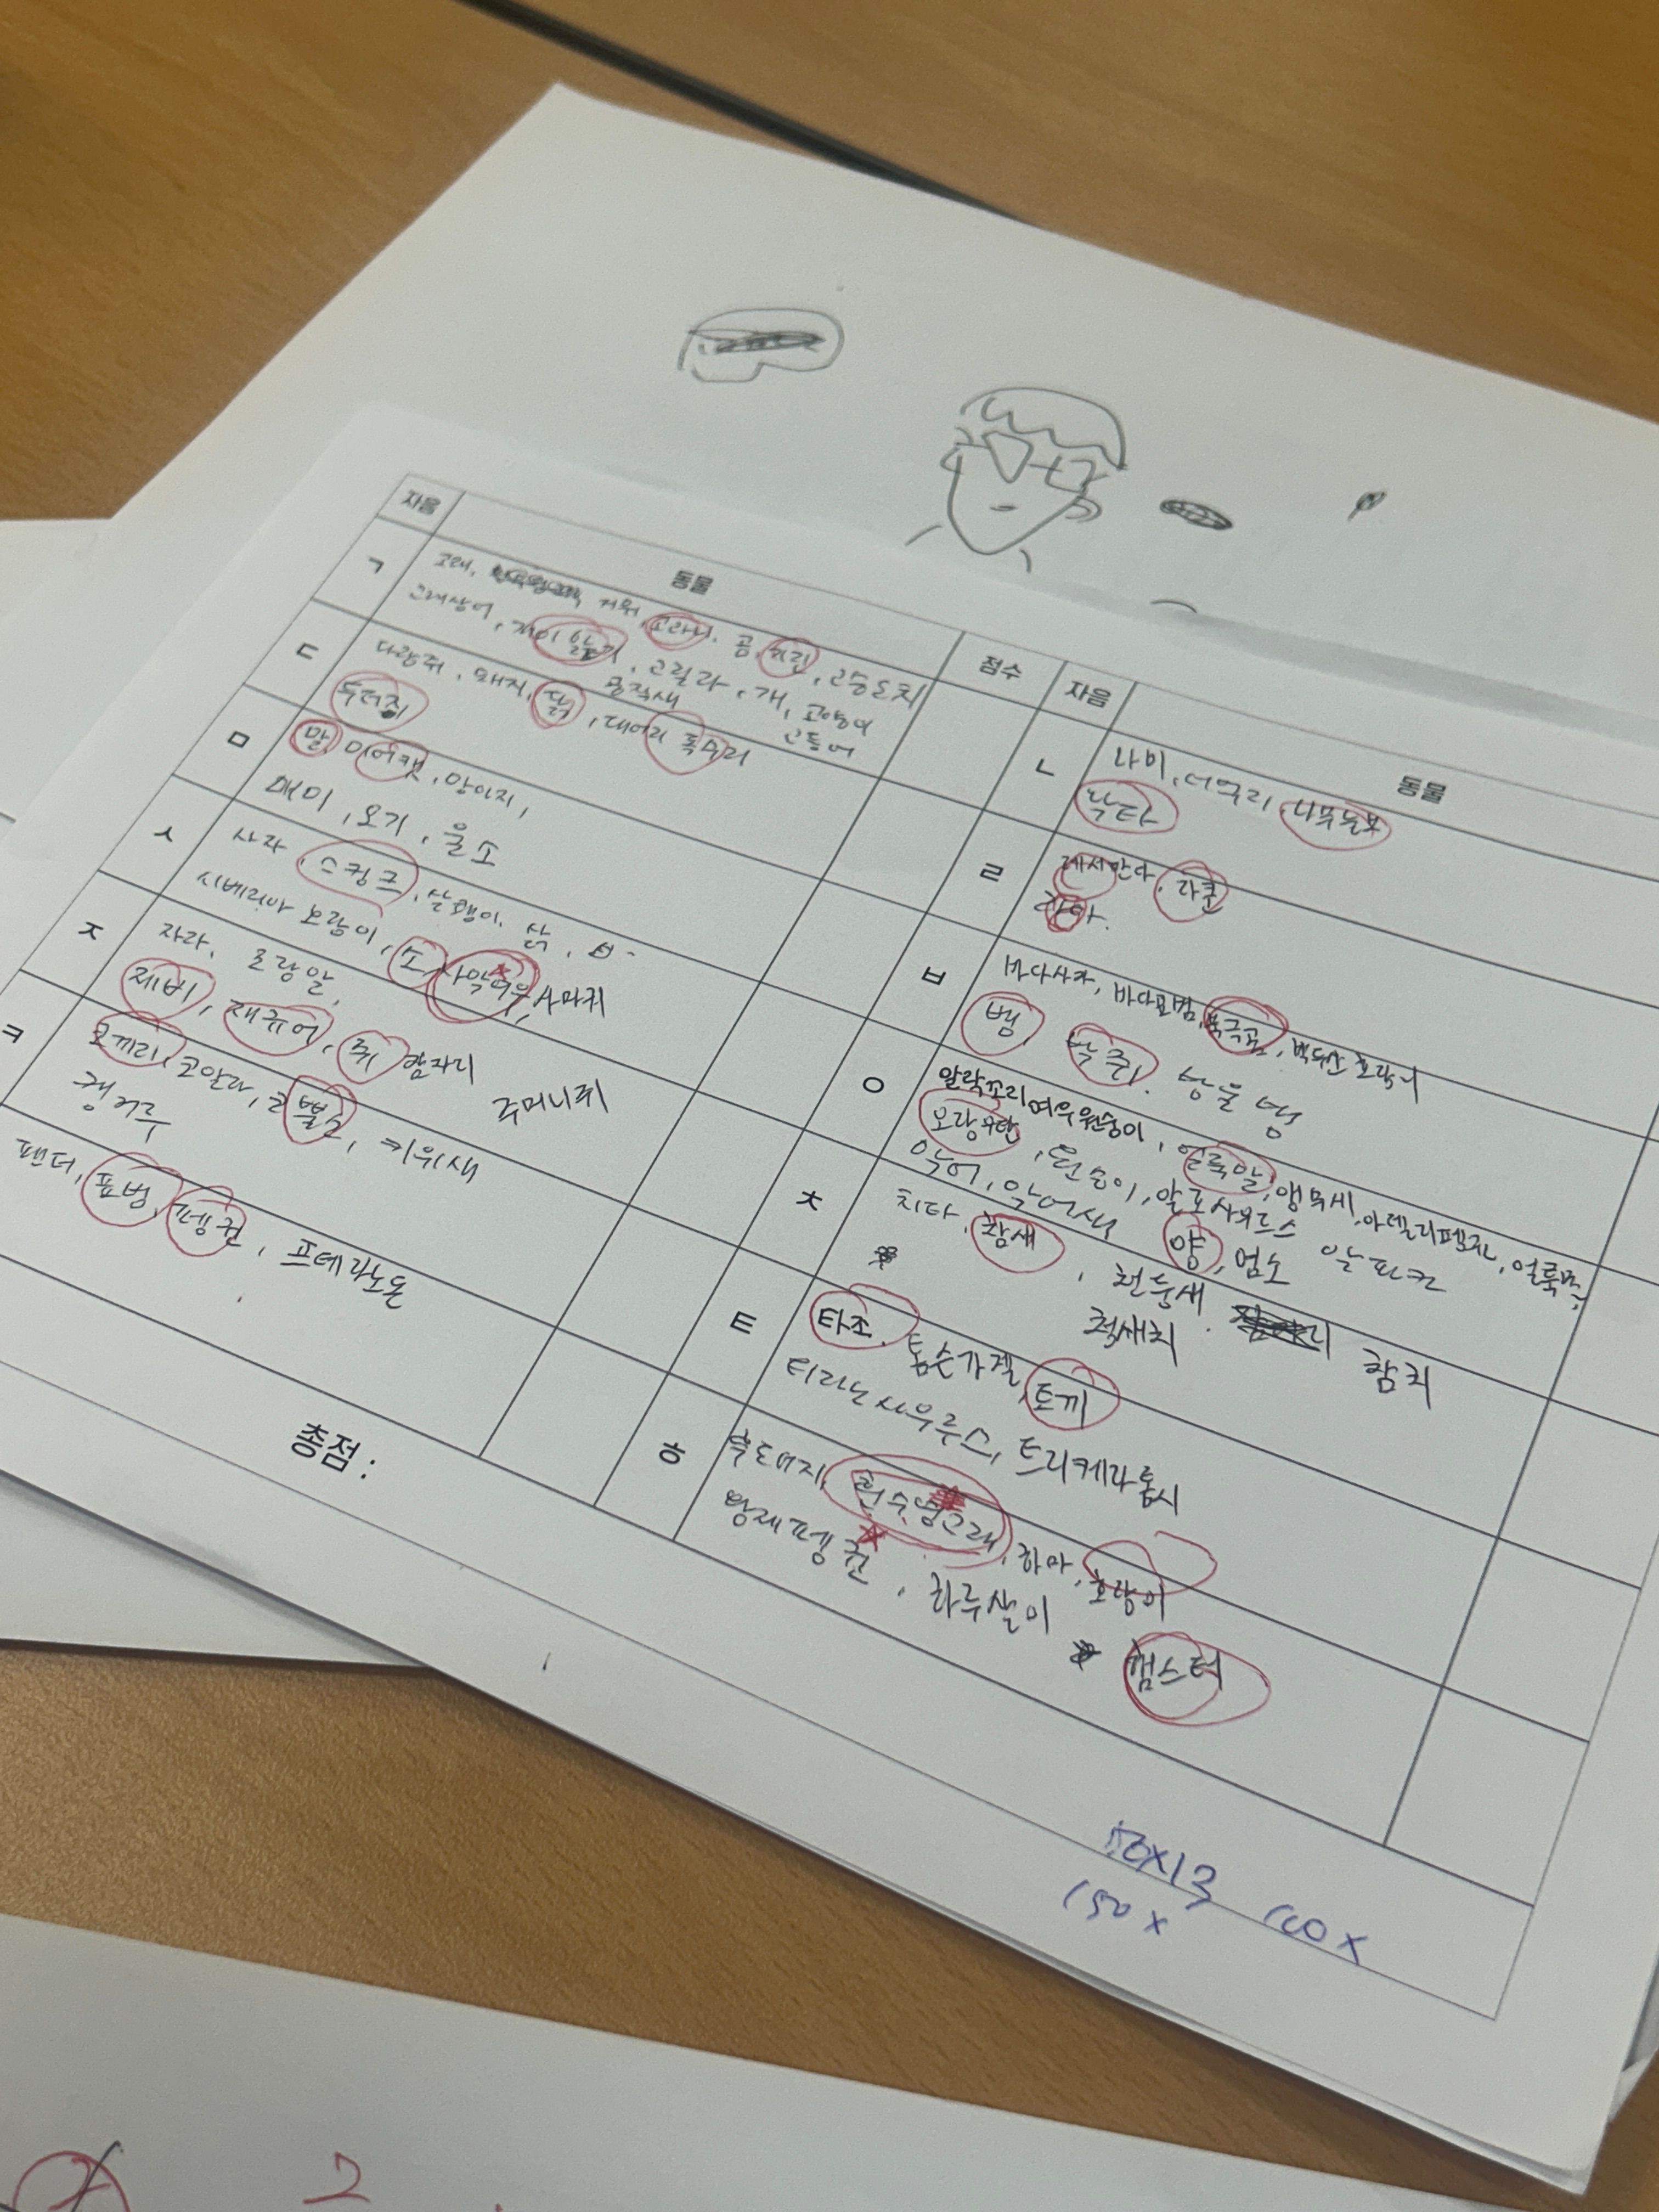 자음 동물 점수
ㄱ 고래, 거위, 고라니, 곰, 기린, 고슴도치
고래상어, 고릴라, 개, 고양이
공작새 고등어
ㄷ 다람쥐, 돼지, 닭, 대머리 독수리
두더지
ㅁ 말, 미어캣, 망아지,
매미, 모기, 물소
ㅅ 사자, 스컹크, 살쾡이, 삵,
시베리아 호랑이, 소, 사막여우, 사마귀
ㅈ 자라, 조랑말,
제비, 재규어, 쥐 잠자리
주머니쥐
ㅋ 코끼리, 코알라, 코뿔소, 키위새
캥거루
팬더, 표범, 펭귄, 프테라노돈
총점 :
자음 동물
ㄴ 나비, 너구리, 나무늘보
낙타
ㄹ 레서판다, 라쿤
라마.
ㅂ 바다사자, 바다표범, 북극곰, 백두산 호랑이
뱀, 박쥐, 방울뱀
ㅇ 알락꼬리여우원숭이, 얼룩말, 앵무새, 아델리펭귄,
오랑우탄, 원숭이, 알로사우르스 알파카
악어, 악어새 양, 염소
ㅊ 치타, 참새, 천둥새
청새치 참치
ㅌ 타조, 톰슨가젤, 토끼
티라노사우루스, 트리케라톱시
ㅎ 흑도마지, 흰수염고래, 하마, 호랑이
황제펭귄, 하루살이 햄스터
50×13 100×
150×